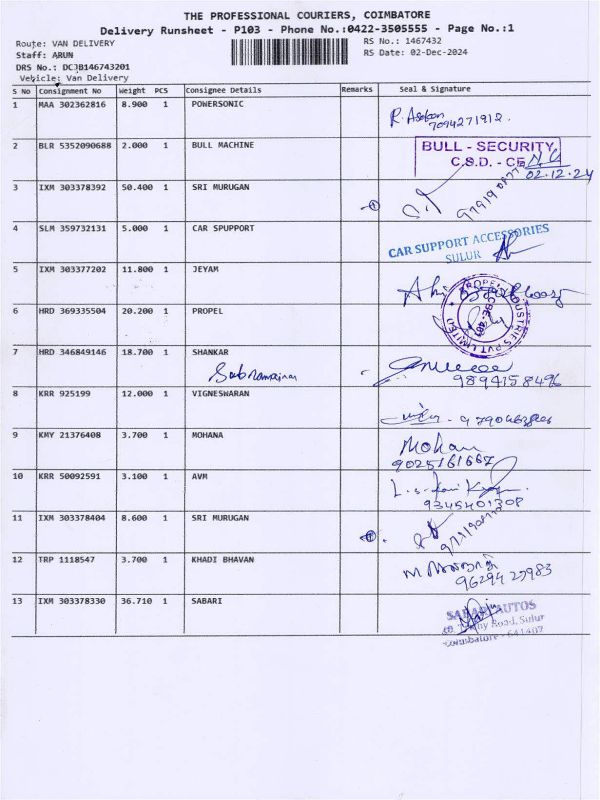 THE PROFESSIONAL COURIERS, COIMBATORE
Delivery Runsheet - P103 - Phone No.:0422-3505555 - Page No.:1
Route: VAN DELIVERY
RS No.: 1467432
Staff: ARUN
RS Date: 02-Dec-2024
DRS No.: DC3B146743201
Vehicle: Van Delivery
S No Consignment No Weight PCS Consignee Details Remarks Seal & Signature
1 MAA 302362816 8.900 1 POWERSONIC
7094271912.
2 BLR 5352090688 2.000 1 BULL MACHINE
BULL - SECURITY
C.S.D. - CE
02.12.24
3 IXM 303378392 50.400 1 SRI MURUGAN
4 SLM 359732131 5.000 1 CAR SPUPPORT
CAR SUPPORT ACCESSORIES
SULUR
5 IXM 303377202 11.800 1 JEYAM
6 HRD 369335504 20.200 1 PROPEL
PROPEL INDUSTRIES PVT LIMITED
7 HRD 346849146 18.700 1 SHANKAR
9894158496
8 KRR 925199 12.000 1 VIGNESWARAN
9 KMY 21376408 3.700 1 MOHANA
Mohan
9025161667
10 KRR 50092591 3.100 1 AVM
9345401308
11 IXM 303378404 8.600 1 SRI MURUGAN
12 TRP 1118547 3.700 1 KHADI BHAVAN
9629427983
13 IXM 303378330 36.710 1 SABARI
SABARI AUTOS
Road, Sulur
Coimbatore - 641407